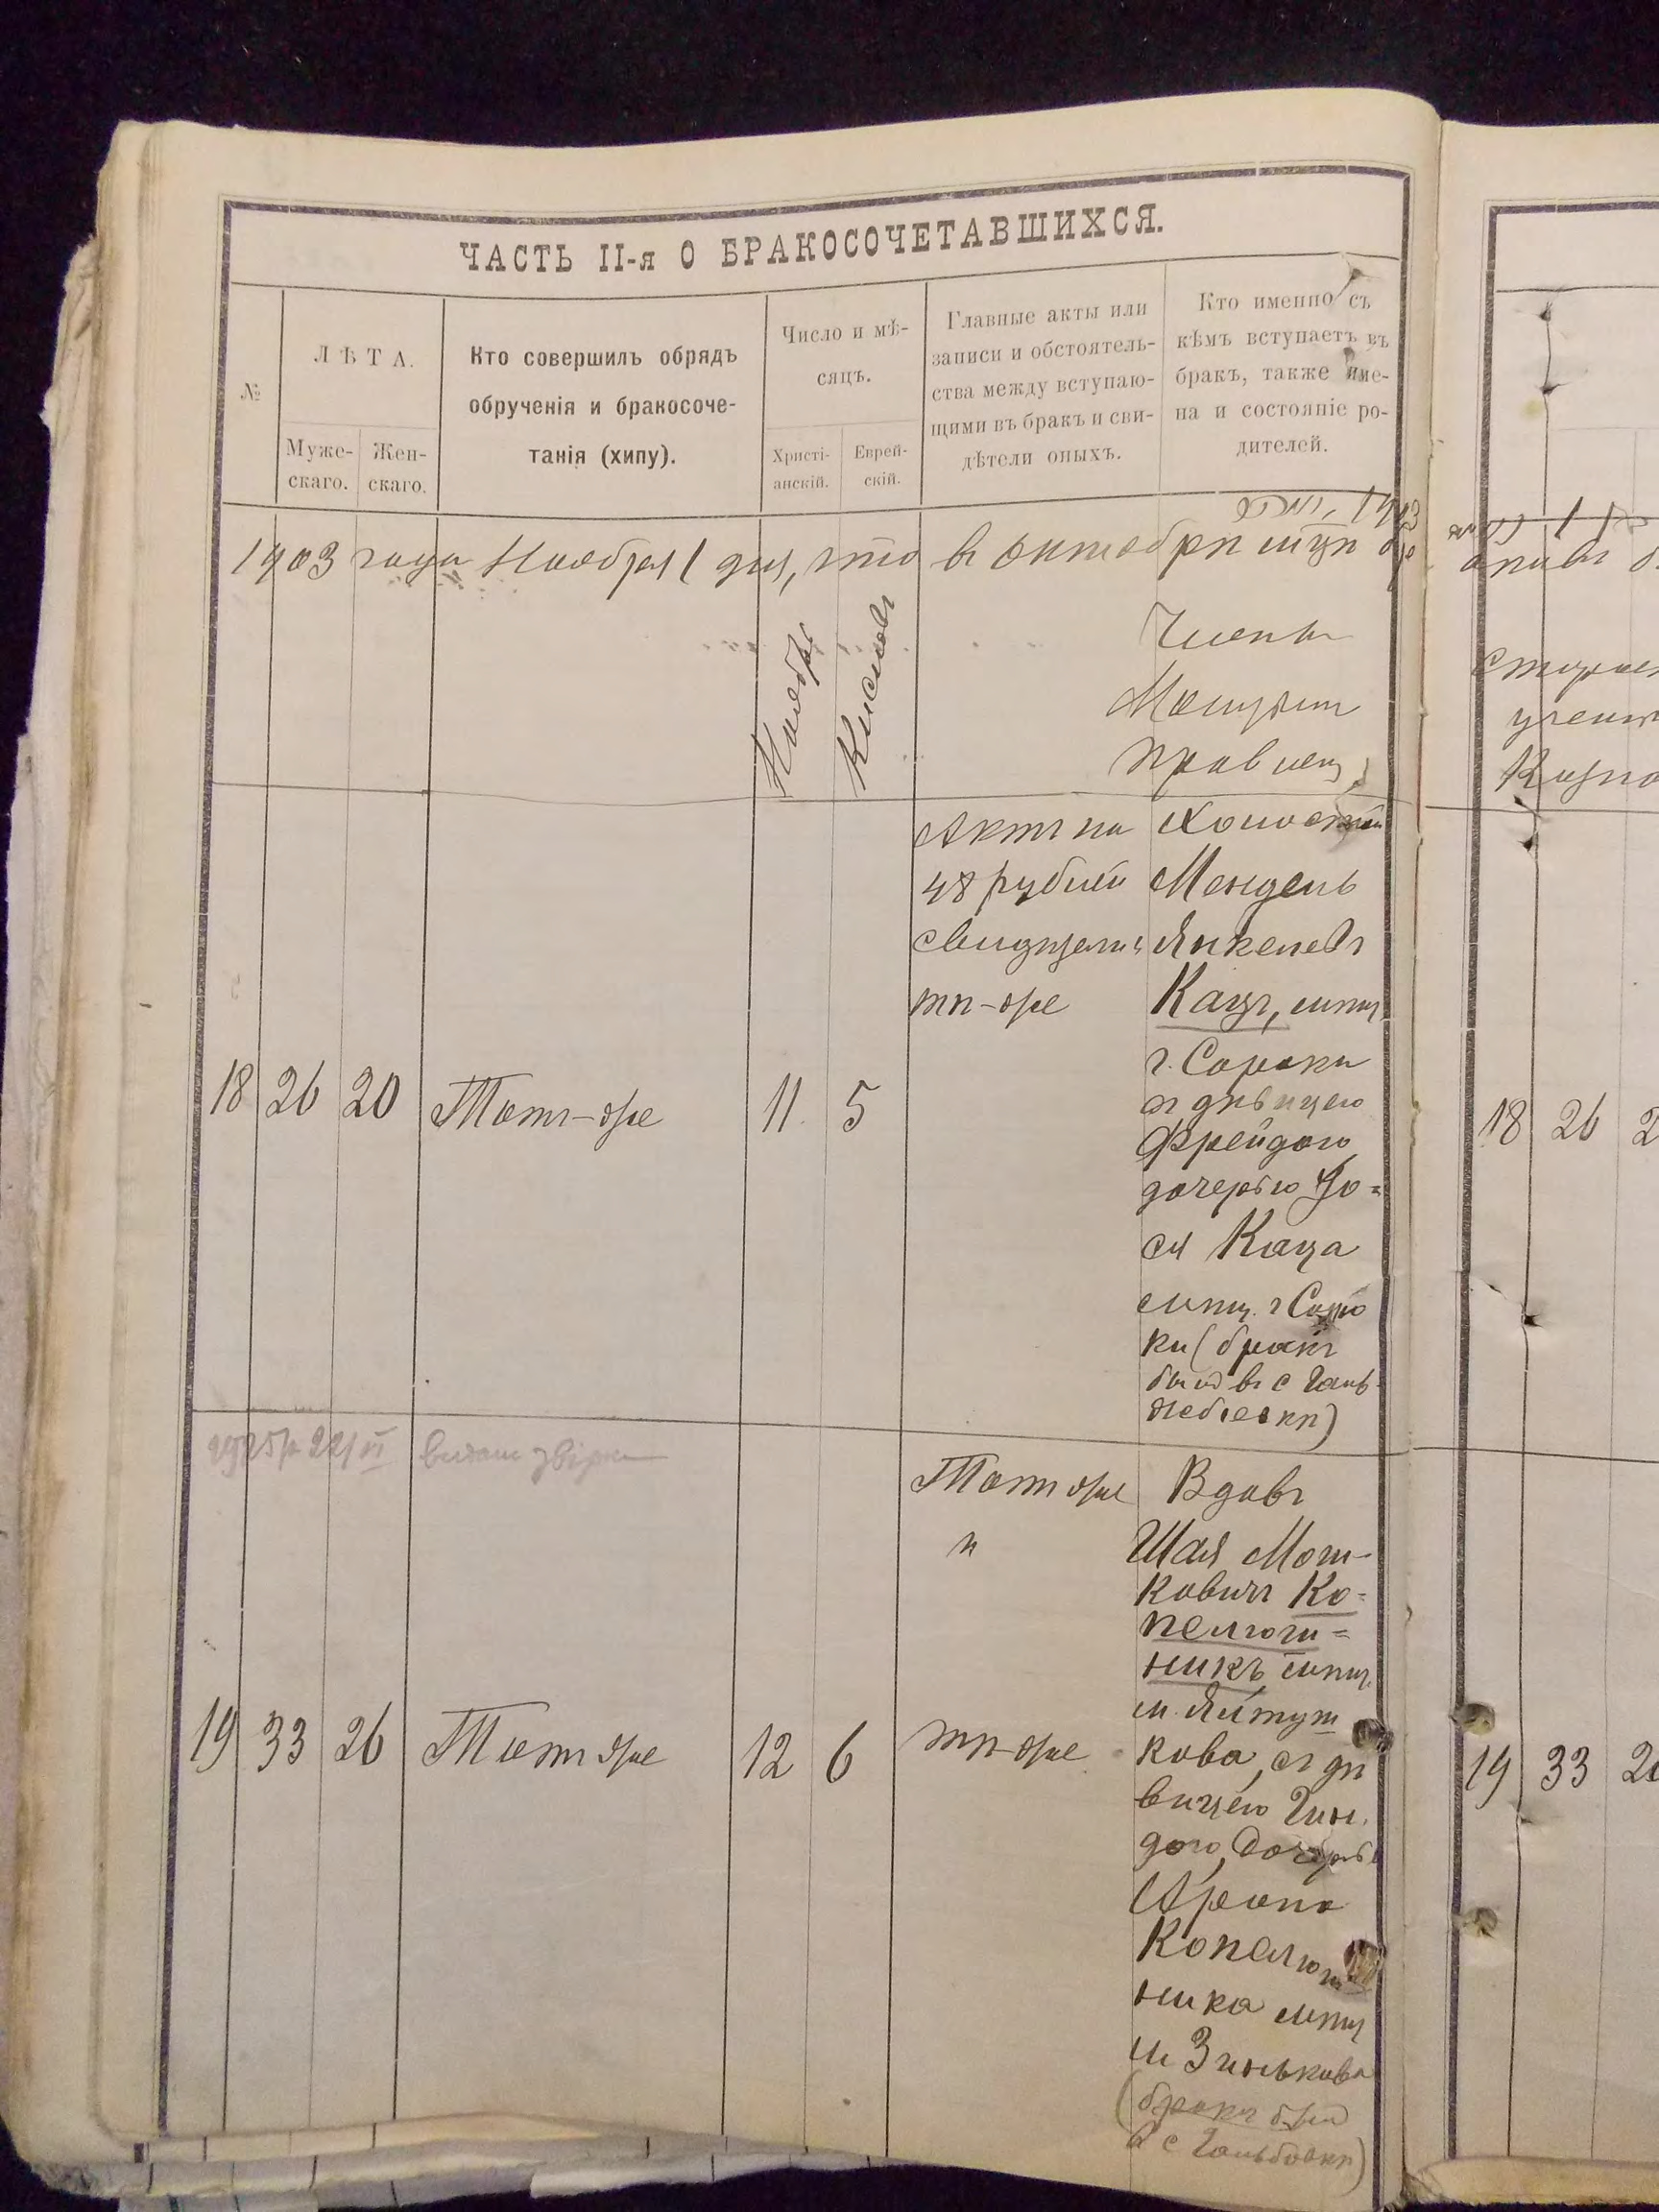 ЧАСТЬ II-я О БРАКОСОЧЕТАВШИХСЯ.
№
ЛѢТА.
Муже-
скаго.
Жен-
скаго.
Кто совершилъ обрядъ
обрученія и бракосоче-
танія (хипу).
Число и мѣ-
сяцъ.
Христі-
анскій.
Еврей-
скій.
Главные акты или
записи и обстоятель-
ства между вступаю-
щими въ бракъ и сви-
дѣтели оныхъ.
Кто именно съ
кѣмъ вступаетъ въ
бракъ, также име-
на и состояніе ро-
дителей.
1903 года Ноября 1 дня, что въ октябрѣ
Ноябрь
Кислевъ
Члены
18
26
20
Тотъ-же
11
5
Актъ на
48 рублей
свидѣтели
тѣ-же
Холостой
Мендель
Янкелевъ
Кацъ, мѣщ.
г. Сороки
съ дѣвицею
Фрейдою
дочерью Іо-
ся Каца
мѣщ. г Соро
ки (бракъ
былъ въ с Голь
жбіевкѣ)
1925 р 22/VI
19
33
26
Тотъ же
12
6
Тотъ же
и
тѣ-же
Вдовъ
Шая Мош-
ковичъ Ко-
пелюш-
никъ мѣщ.
м. Ялтуш
кова, съ дѣ
вицею Гин.
дою, дочерью
Арона
Копелюш
ника мѣщ
м Зинькова
(бракъ былъ
в с
18
26
2
19
33